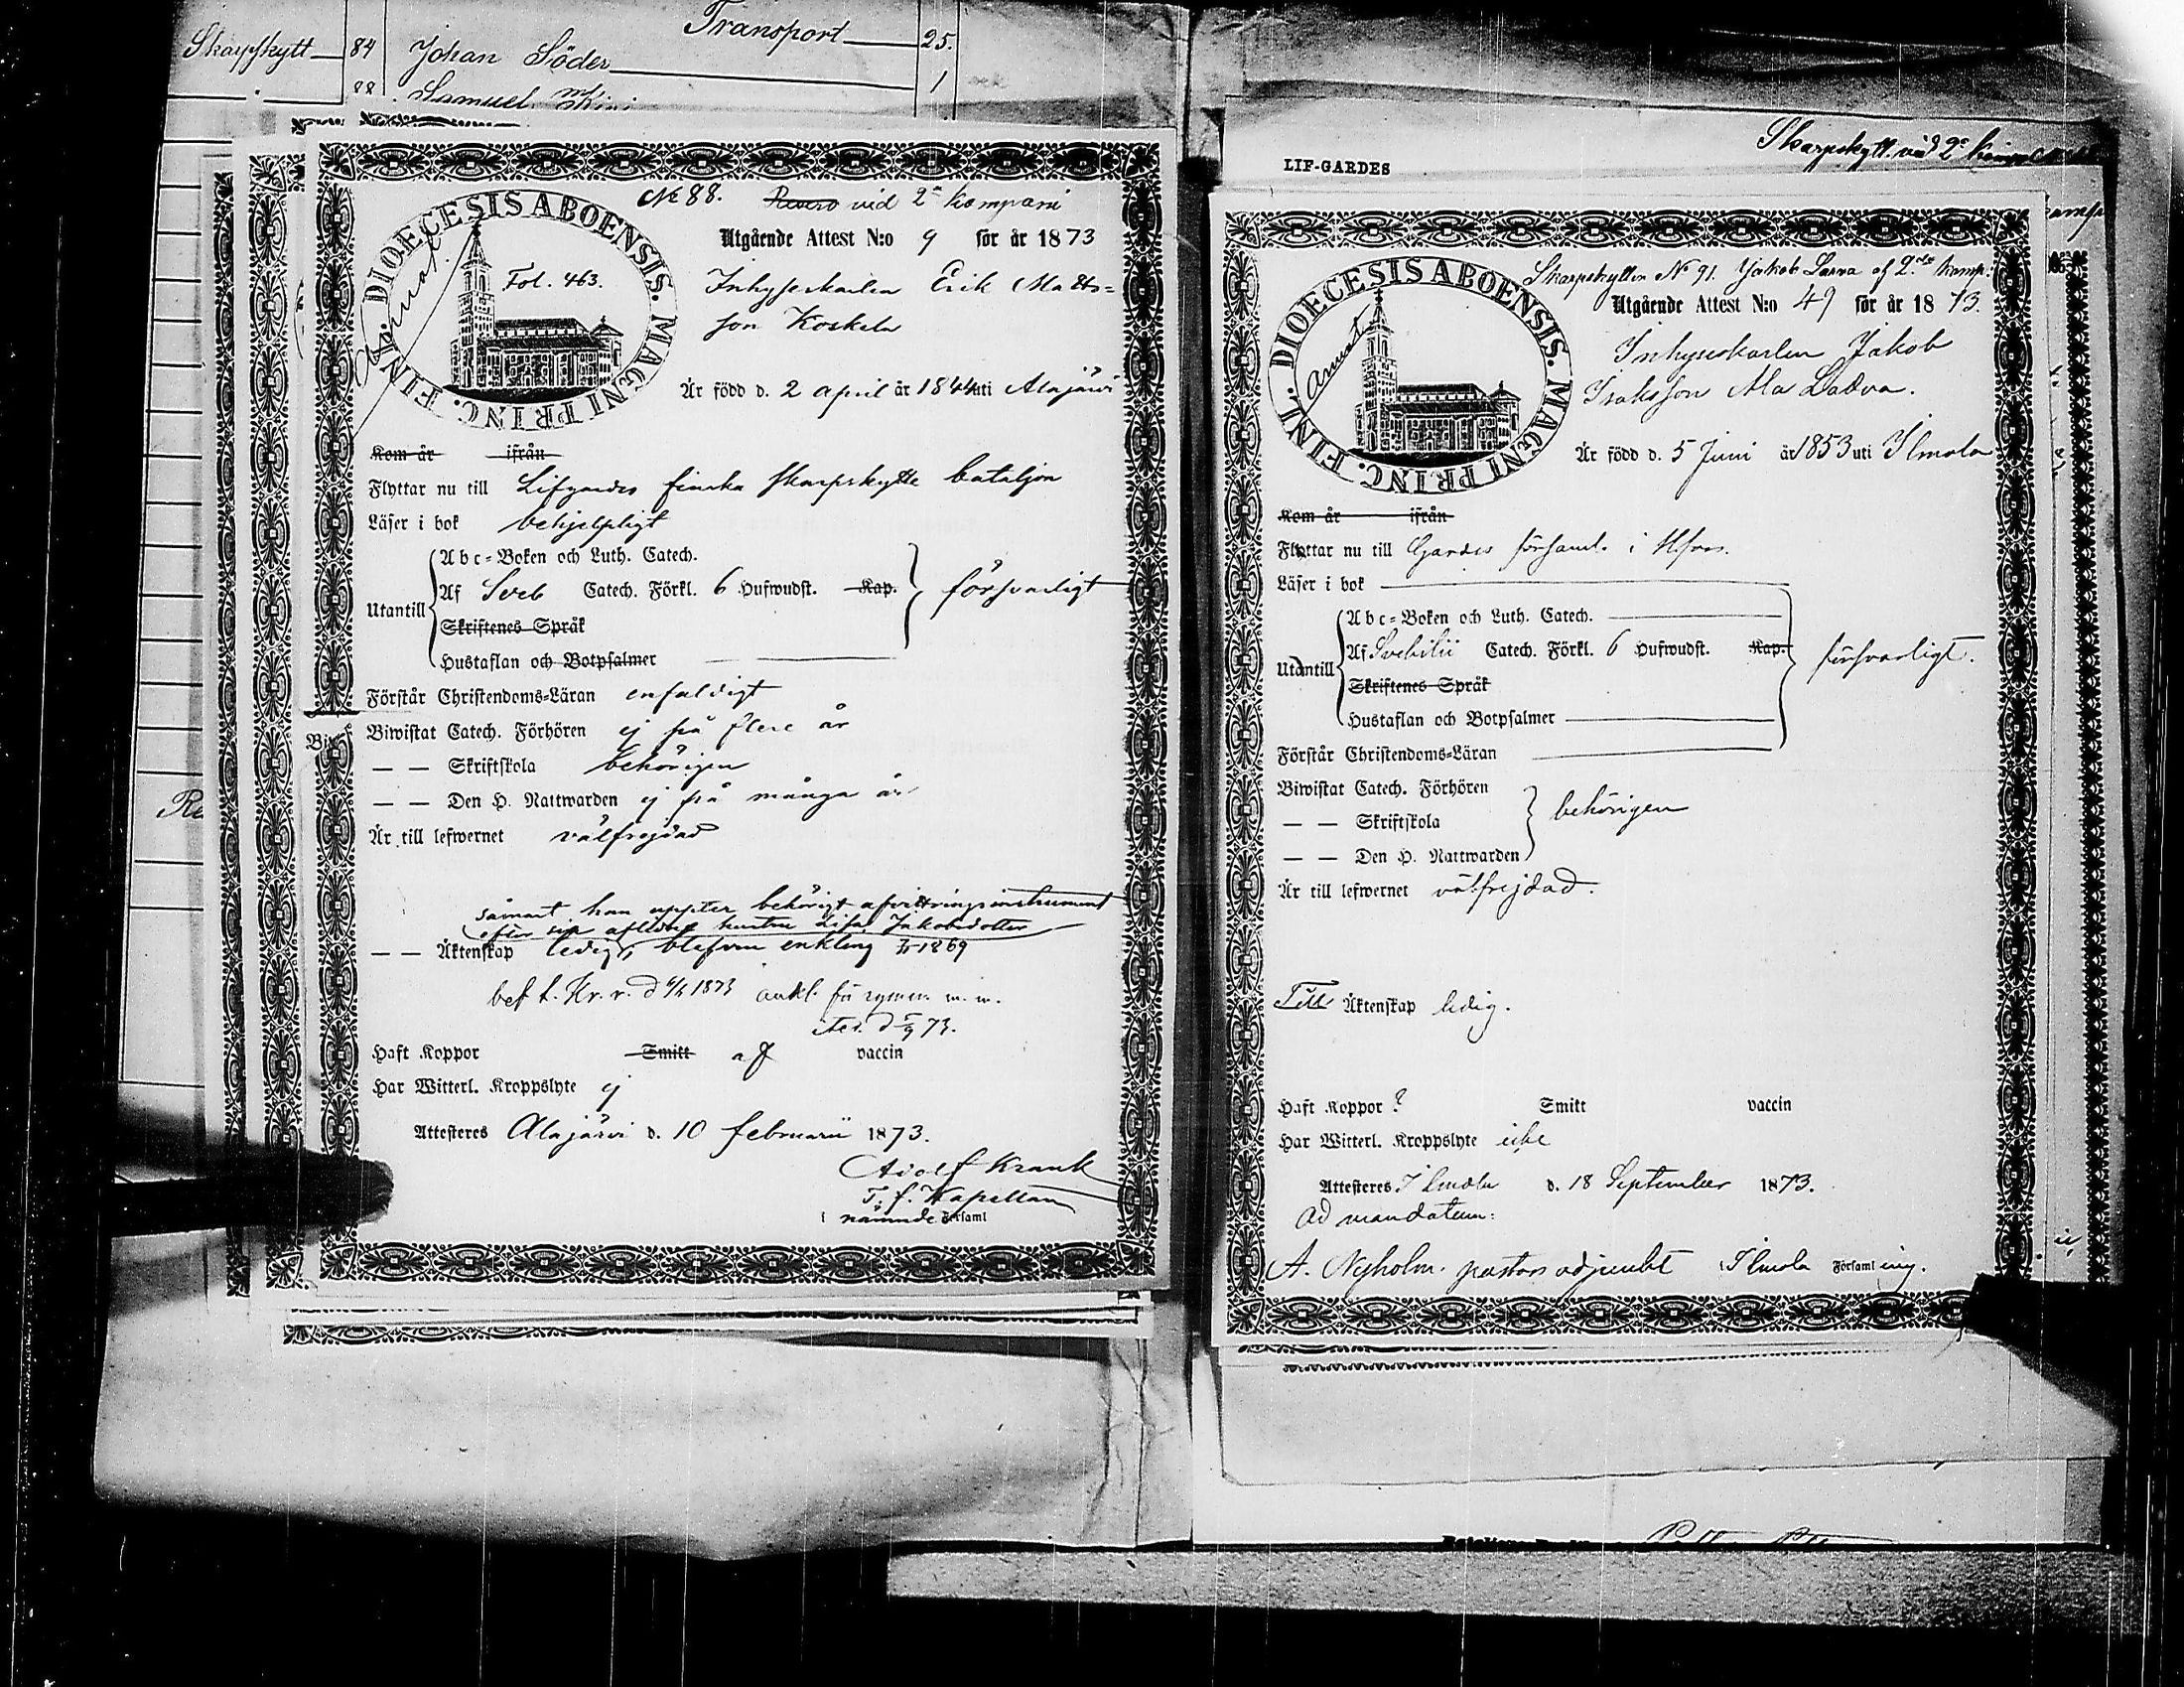 Transport 25.
Skarpskytt 84 Johan Söder 1
88 Samuel
№ 88. Reserv vid 2a Kompani
DIOECESIS ABOENSIS. MAGNI PRINC. FINL.
Fol. 463.
Utgående Attest N:o 9 för år 1873
Inhysekarlen Erik Matts=
son Koskela
Är född d. 2 april år 1844 uti Alajärvi
Kom år ifrån
Flyttar nu till Lifgardes finska skarpskytte bataljon
Läser i bok behjelpligt
Utantill
Abc=Boken och Luth. Catech.
Af Sveb Catech. Förkl. 6 Hufwudst. Kap. försvarligt
Skriftenes Språk
Hustaflan och Botpsalmer
Förstår Christendoms=Läran enfaldigt
Biwistat Catech. Förhören ej på flere år
— — Skriftskola behörigen
— — Den H. Nattwarden ej på många år
Är till lefwernet välfrejdad
såsnart han uppter behörigt afvittringsinstrument
efter sin aflidne hustru Lisa Jakobsdotter
— — Äktenskap ledig, blefven enkling 1869
bef. t. Kr. v. d 1873
73.
Haft Koppor Smitt af vaccin
Har Witterl. Kroppslyte ej
Attesteres Alajärvi d. 10 februarii 1873.
Adolf Krank
T. f. Kapellan
i nämnde Församl
LIF-GARDES
Skarpskytt vid 2a
Skarpskytten № 91. Jakob Larva af 2dra komp.
DIOECESIS ABOENSIS. MAGNI PRINC. FINL.
Utgående Attest N:o 49 för år 1873.
Inhysekarlen Jakob
Isaksson Ala Ladva.
Är född d. 5 Juni år 1853 uti Ilmola
Kom år ifrån
Flyttar nu till Gardes församl. i Hfors.
Läser i bok
Utantill
Abc=Boken och Luth. Catech.
Af Svebilii Catech. Förkl. 6 Hufwudst. Kap. försvarligt.
Skriftenes Språk
Hustaflan och Botpsalmer
Förstår Christendoms=Läran
Biwistat Catech. Förhören
— — Skriftskola behörigen
— — Den H. Nattwarden
Är till lefwernet välfrejdad.
Till Äktenskap ledig.
Haft Koppor ? Smitt vaccin
Har Witterl. Kroppslyte icke
Attesteres Ilmola d. 18 September 1873.
Ad mandatum:
A. Nyholm. pastors adjunkt i Ilmola Församling.